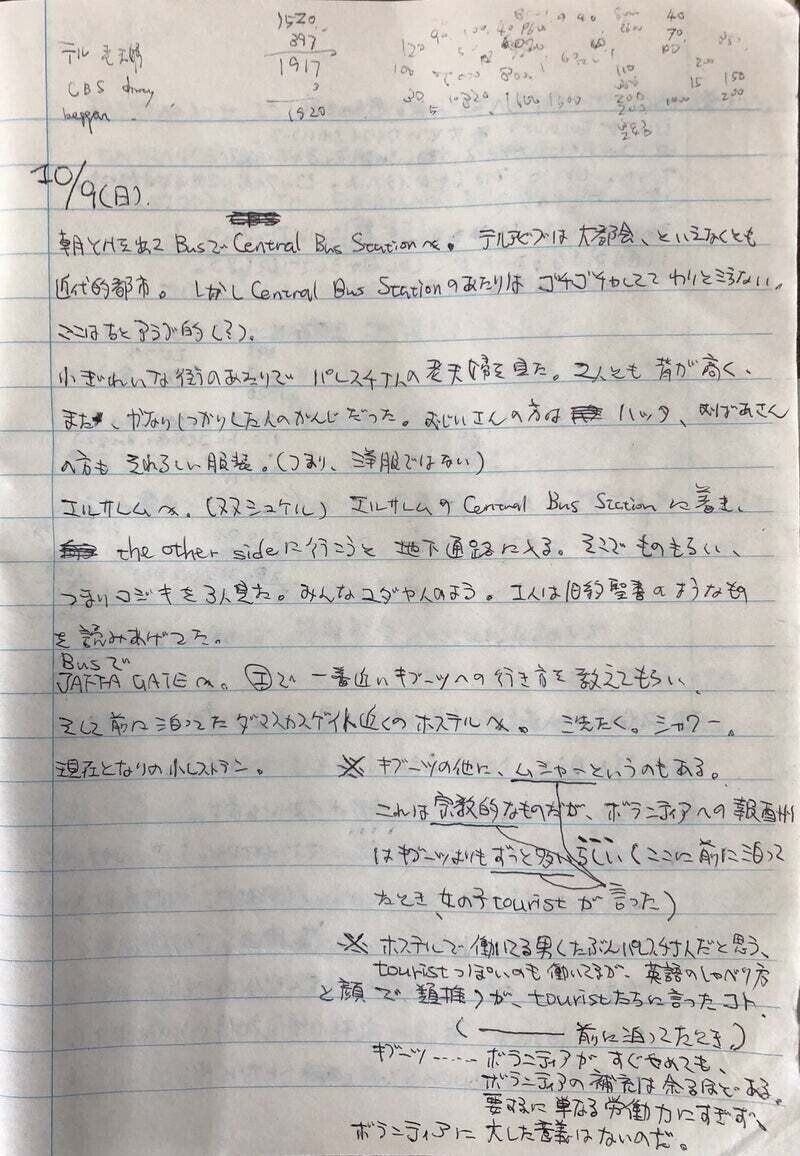 1520
397
1917
1920
テル 老夫婦
CBS
10/9(日).
朝YHを出て BusでCentral Bus Stationへ。テルアビブは大都会、といえなくとも
近代的都市。しかし Central Bus Stationのあたりは ゴチゴチャしてて わりときたない。
ここは
アラブ的(?)。
小ぎれいな街のあたりで パレスチナ人の老夫婦を見た。2人とも 背が高く、
また、かなりしっかりした人のかんじだった。おじいさんの方は ハッタ、おばあさん
の方も それらしい服装。(つまり、洋服ではない)
エルサレムへ。(
シュケル) エルサレムの Central Bus Station に着き、
the other sideに行こうと 地下通路に入る。そこで ものもらい、
つまりコジキを3人見た。みんなユダヤ人のよう。1人は旧約聖書のようなもの
を読みあげてた。
Busで
JAFFA GATEへ。 Iで 一番近いキブーツへの行き方を教えてもらい、
そして前に泊ってたダマスカスゲイト近くのホステルへ。 洗たく。シャワー。
現在となりの小レストラン。
※ キブーツの他に、ムシャーというのもある。
これは宗教的なものだが、ボランティアへの報酬
はキブーツよりもずっと多いらしい(ここに前に泊って
たとき、女の子touristが言った)
※ ホステルで働いてる男(たぶんパレスチナ人だと思う、
touristっぽいのも働いてるが、英語のしゃべり方
と顔で類推)が、touristたちに言ったコト、
(―― 前に泊ってたとき。)
キブーツ……ボランティアがすぐやめても、
ボランティアの補充は余るほどある。
要するに単なる労働力にすぎず、
ボランティアに大した意義はないのだ。